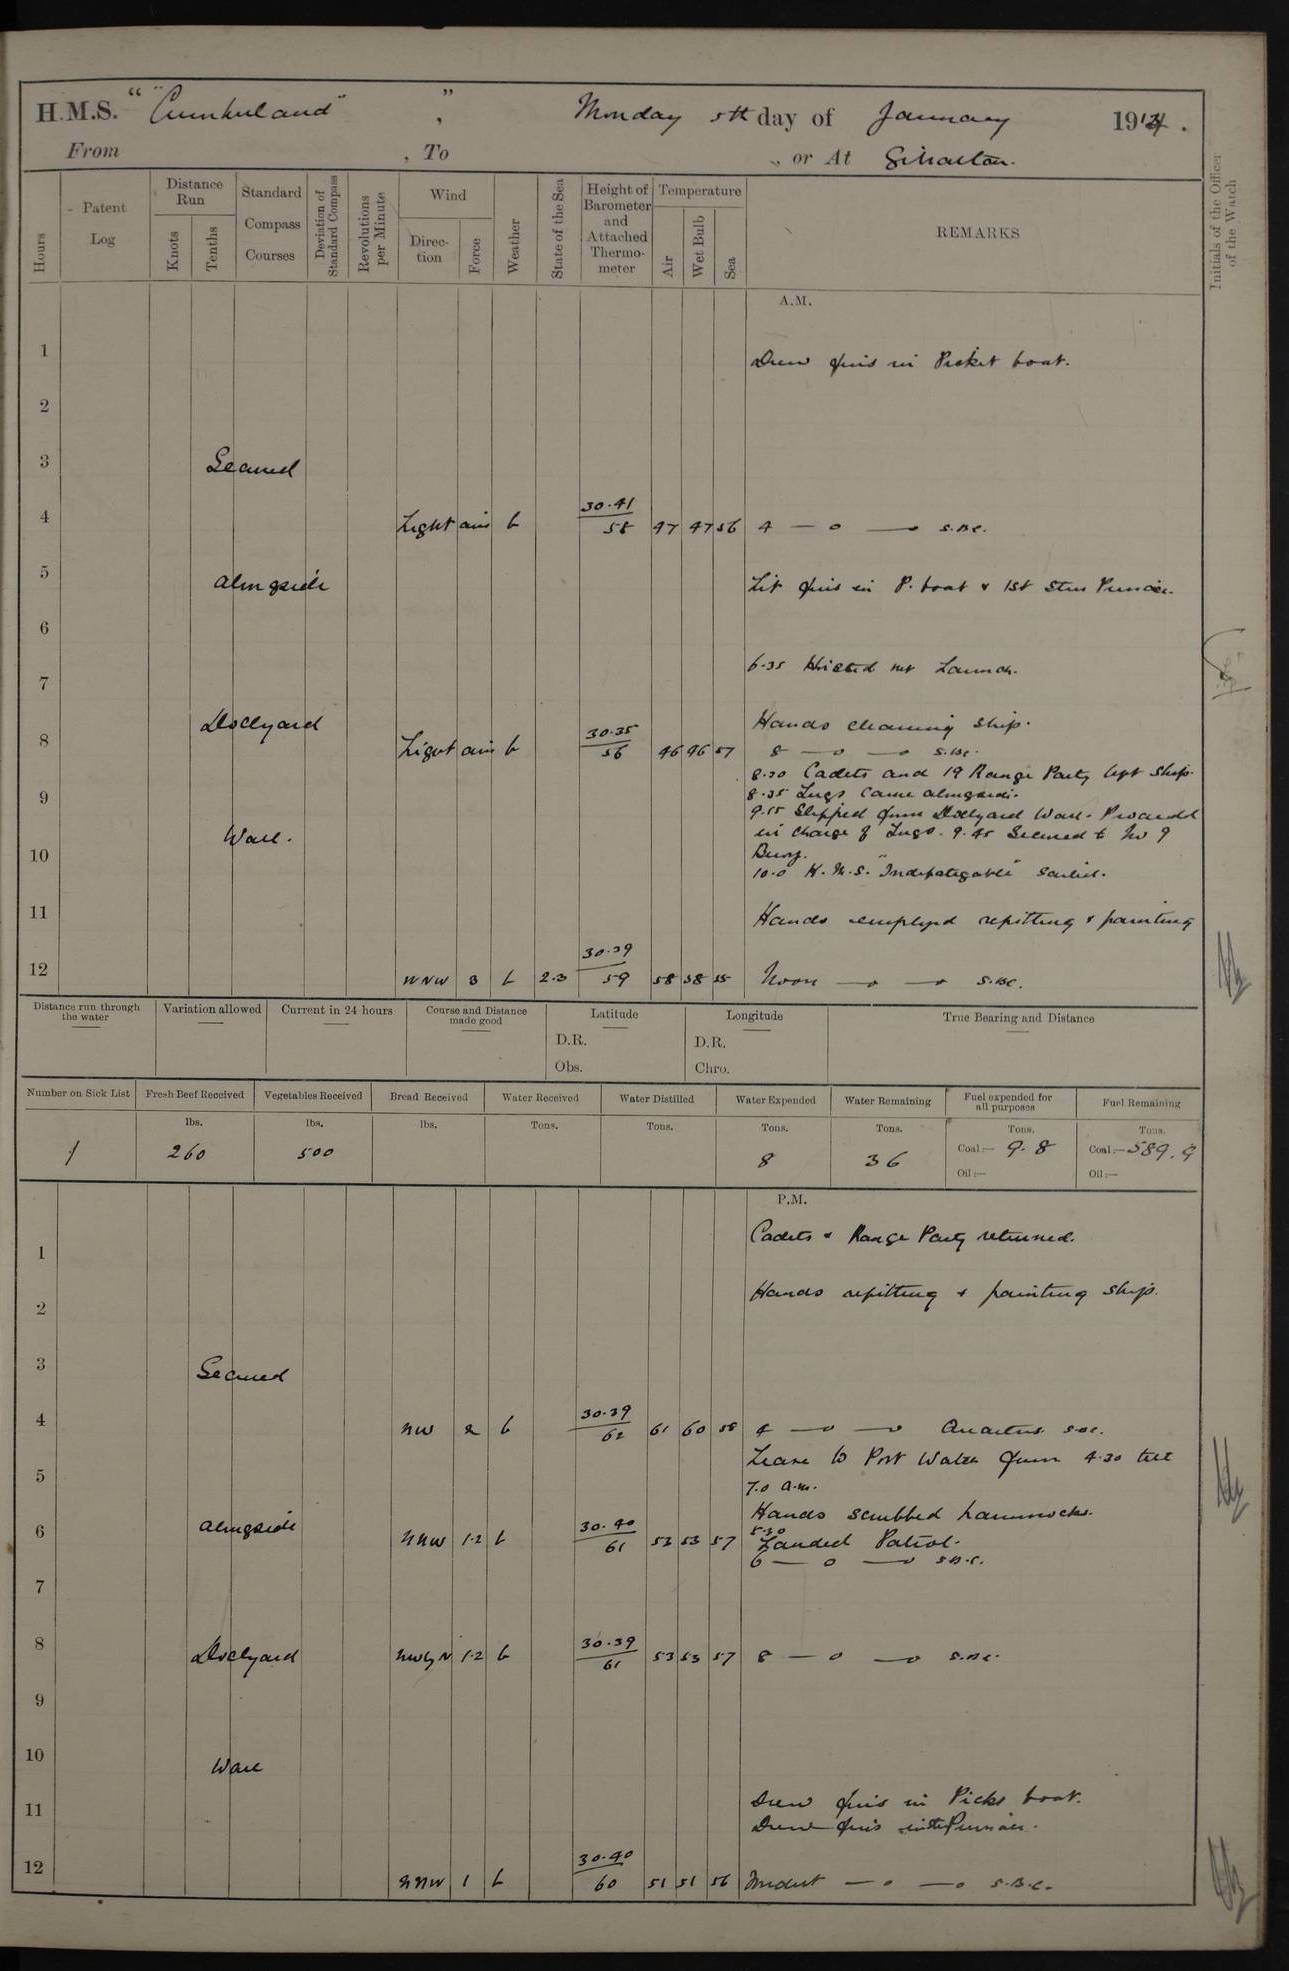 H.M.S. "Cumberland", Monday 5th day of January 1914.
From , To , or At Gibraltar.
Hours
Patent Log
Distance Run
Knots
Tenths
Standard Compass Courses
Deviation of Standard Compass
Revolutions per Minute
Wind
Direction
Force
Weather
State of the Sea
Height of Barometer and Attached Thermometer
Temperature
Air
Wet Bulb
Sea
REMARKS
Initials of the Officer of the Watch
A.M.
1 Drew fires in Picket boat.
2
3 Secured
4 Light airs b 30.41 58 47 47 56 4 — o — o S.B.C.
5 alongside Lit fires in P. boat & 1st Stm Pinnace.
6
6.35 Hoisted out Launch.
7
Dockyard Hands cleaning ship.
8 Light airs b 30.35 56 46 46 57 8 — o — o S.B.C.
8.20 Cadets and 19 Range Party left Ship.
9 8.35 Tugs came alongside.
9.15 Slipped from Dockyard Wall. Proceeded
Wall. in charge of Tugs. 9.45 Secured to No 9
10 Buoy.
10.0 H.M.S. "Indefatigable" sailed.
11 Hands employed refitting & painting
12 WNW 3 b 2.3 30.39 59 58 58 55 Noon — o — o S.B.C.
Distance run through the water
Variation allowed
Current in 24 hours
Course and Distance made good
Latitude
D.R.
Obs.
Longitude
D.R.
Chro.
True Bearing and Distance
Number on Sick List
Fresh Beef Received
Vegetables Received
Bread Received
Water Received
Water Distilled
Water Expended
Water Remaining
Fuel expended for all purposes
Fuel Remaining
lbs. lbs. lbs. Tons. Tons. Tons. Tons. Tons. Tons.
1 260 500 8 36 Coal:— 9.8 Coal:— 589.9
Oil:— Oil:—
P.M.
Cadets & Range Party returned.
1
2 Hands refitting & painting ship.
3 Secured
4 NW 2 b 30.39 62 61 60 58 4 — o — o Quarters S.B.C.
Leave to Port Watch from 4.30 till
5 7.0 a.m.
Hands scrubbed hammocks.
6 alongside NNW 1.2 b 30.40 61 53 53 57 5.30 Landed Patrol.
6 — o — o S.B.C.
7
8 Dockyard NWbyN 1.2 b 30.39 61 53 53 57 8 — o — o S.B.C.
9
10 Wall
11 Drew fires in Picket boat.
Drew fires in Stm Pinnace.
12 NNW 1 b 30.40 60 51 51 56 Midnt — o — o S.B.C.